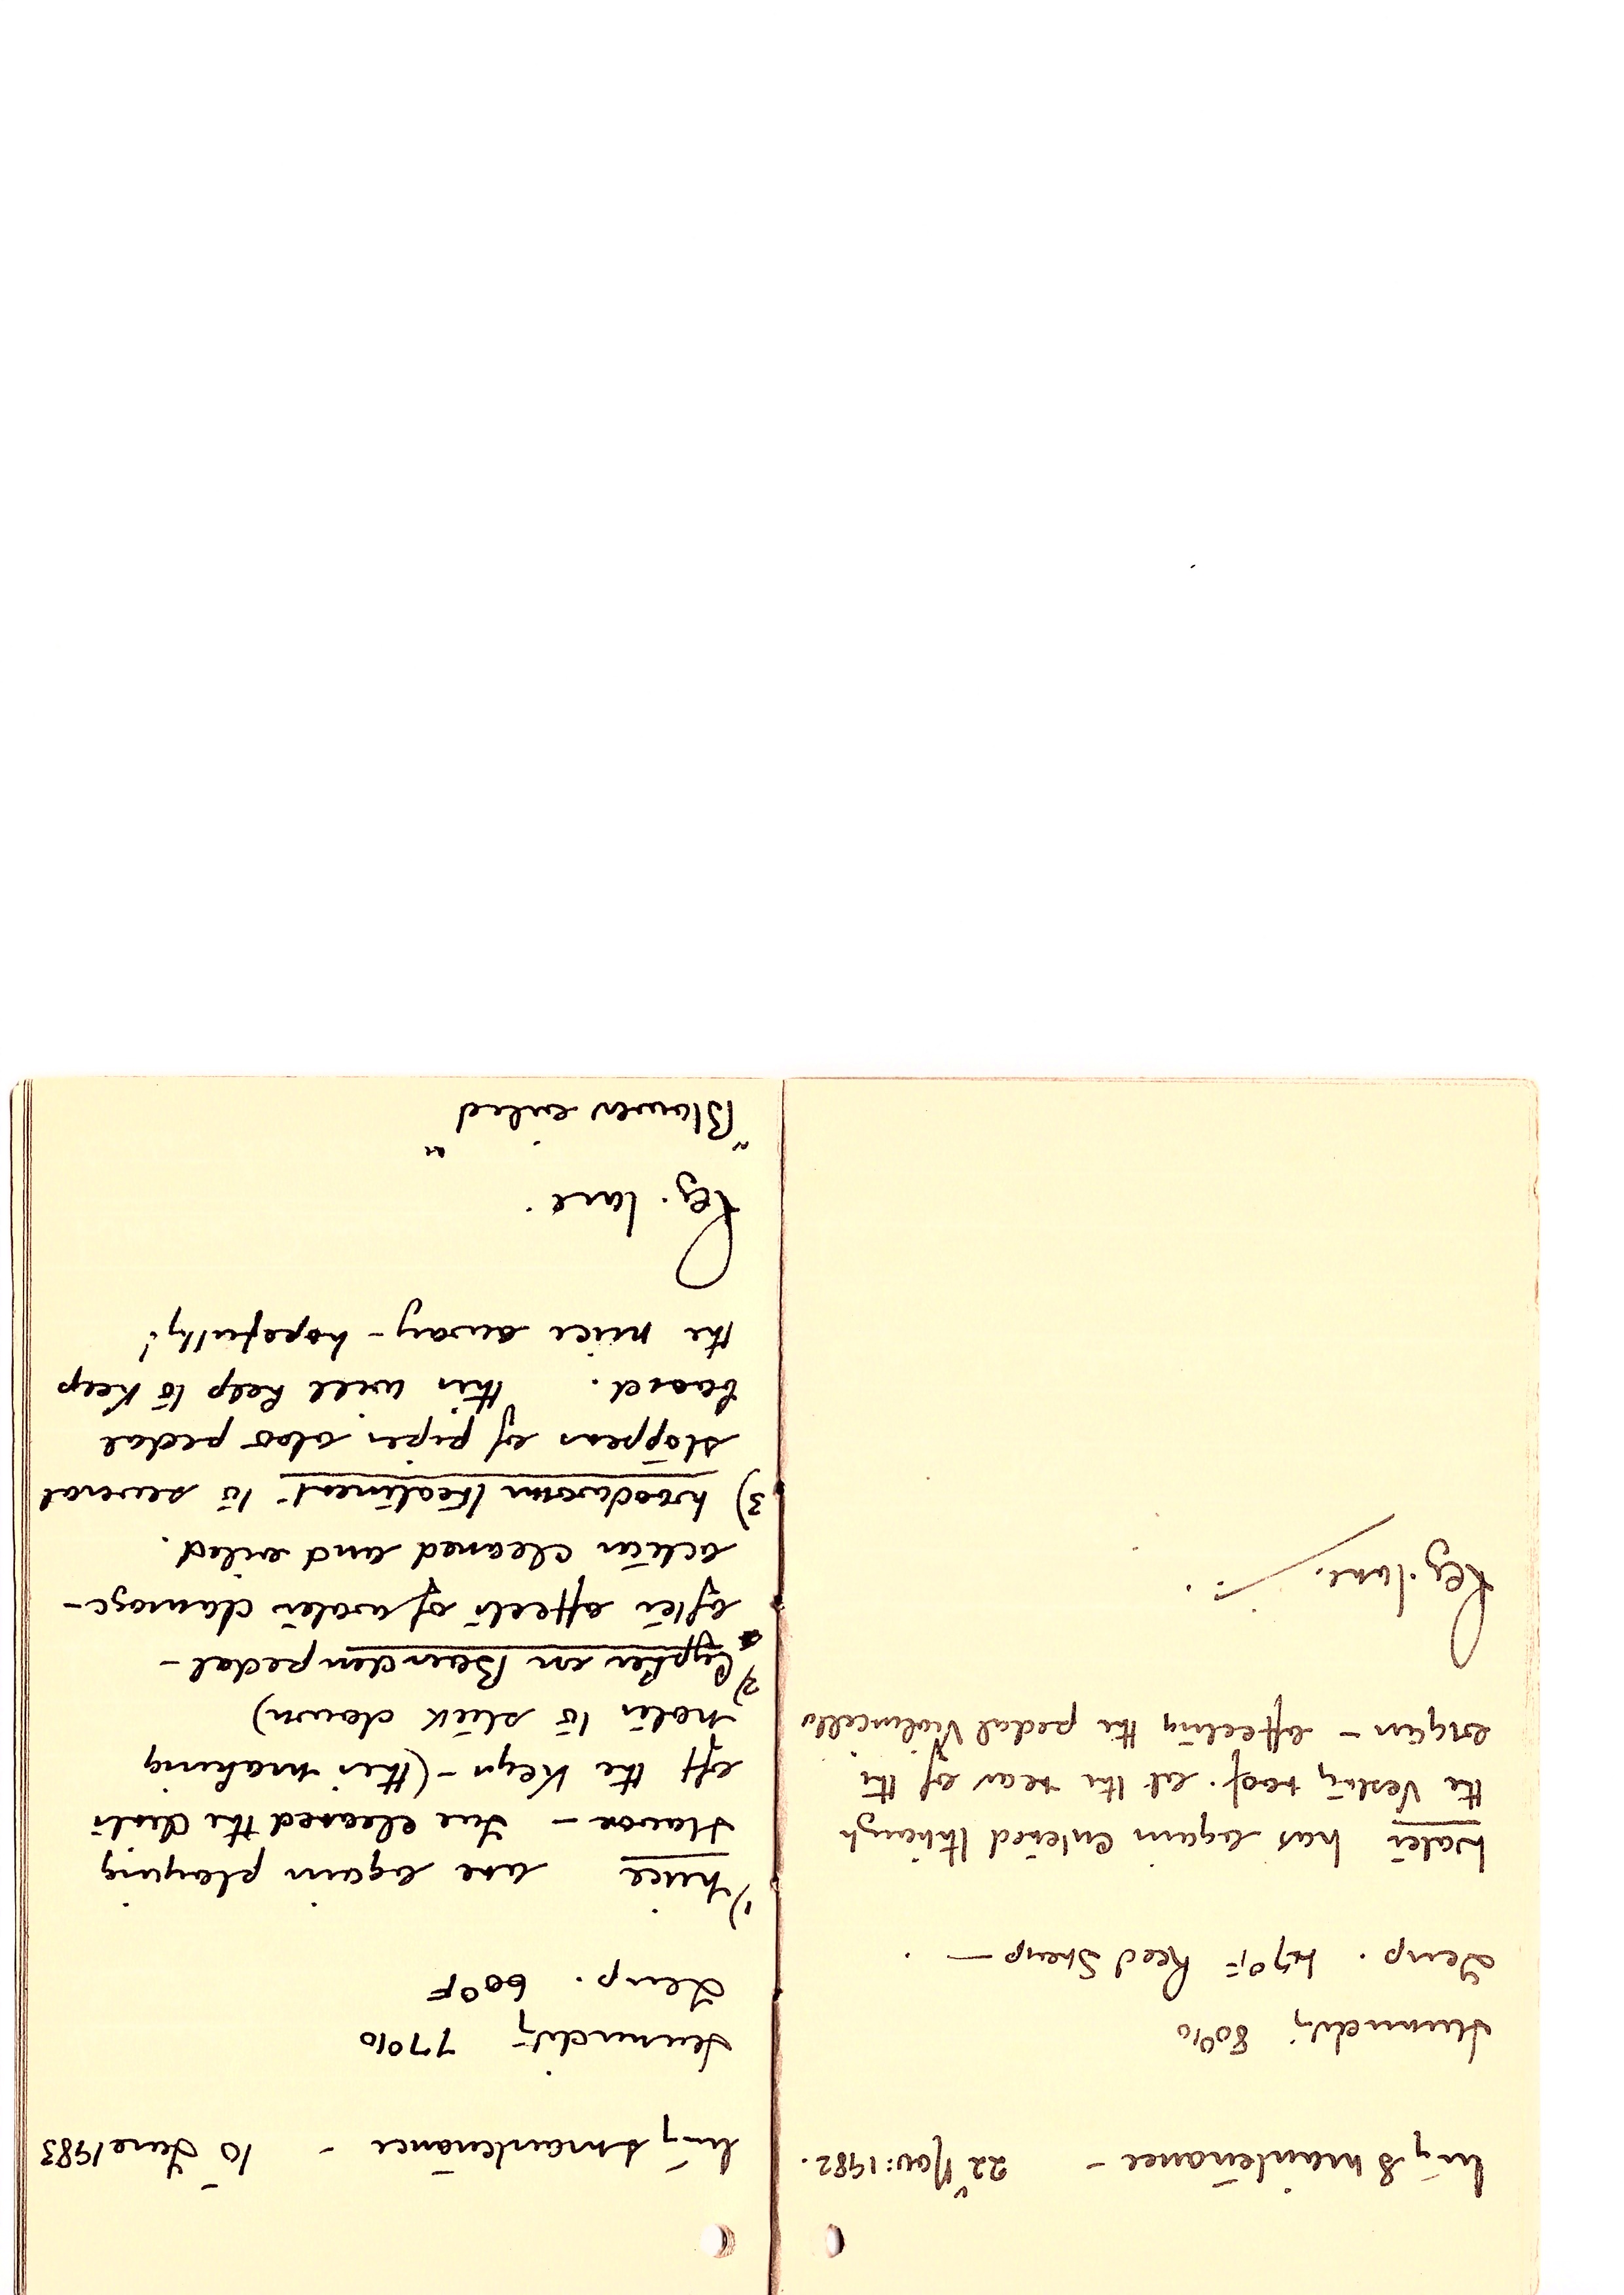 Tuning & Maintenance - 22 Nov: 1982.
Humidity 80%
Temp. 47°F Reed Sharp —
Water has again entered through
the Vestry roof. at the rear of the
organ - effecting the pedal Violincello
Reg. Lane.
Tuning & Maintenance - 10 June 1983
Humidity 77%
Temp. 60°F
1) Mice are again playing
Havoc - Ive cleared the
off the Keys - (this making
notes to stick down)
2) Cypher on Bourdon pedal -
after effects of water damage -
action cleaned and oiled.
3) Woodworm treatment to several
stoppers of pipes also pedal
board. this will help to keep
the mice away - hopefully!
Reg. Lane.
"Blower oiled"